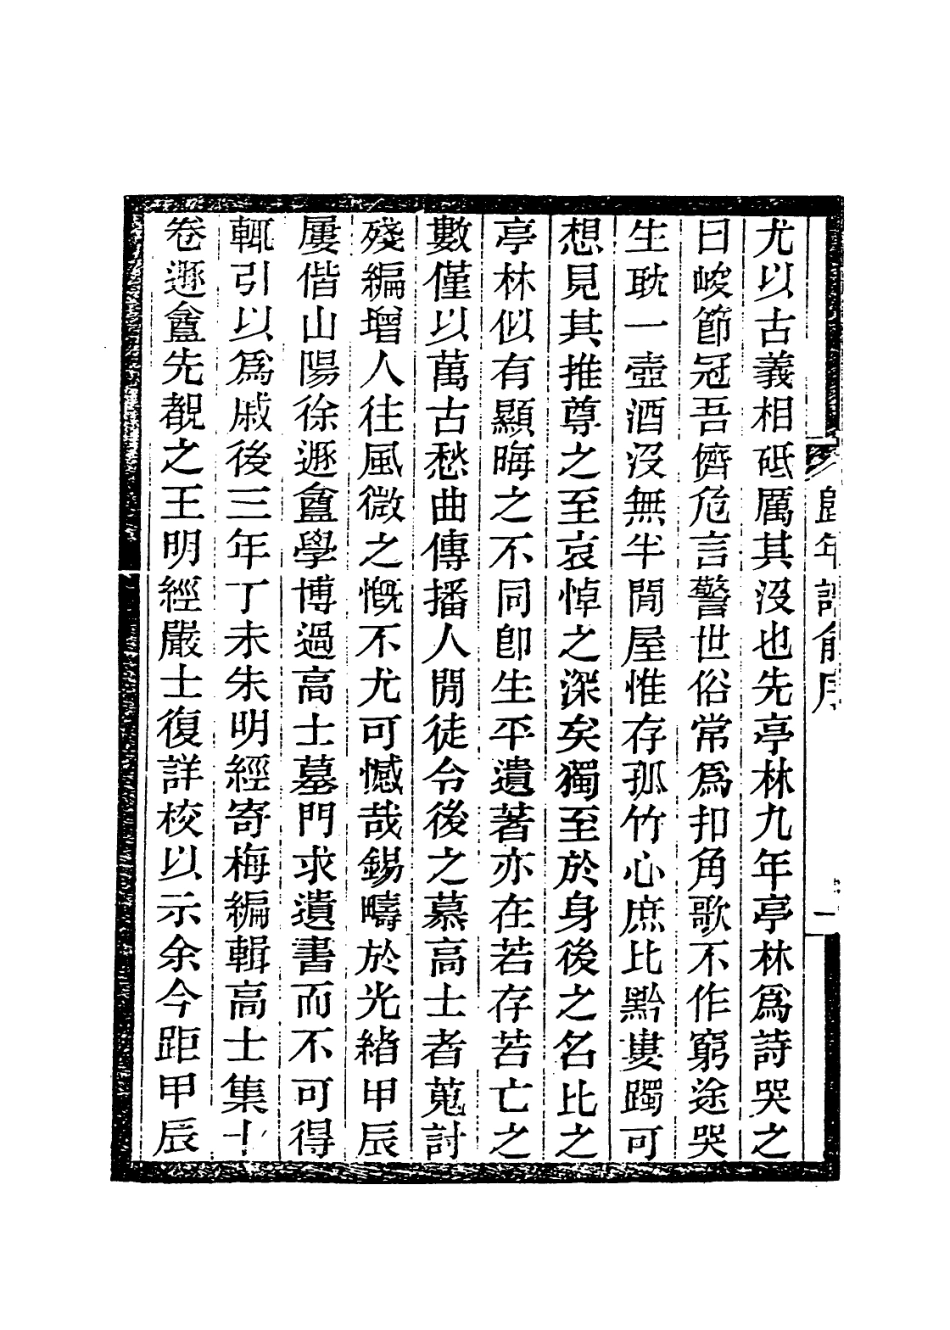 歸年譜俞序
一
尤以古義相砥厲其沒也先亭林九年亭林爲詩哭之
曰峻節冠吾儕危言警世俗常爲扣角歌不作窮途哭
生耽一壺酒沒無半閒屋惟存孤竹心庶比黔婁躅可
想見其推尊之至哀悼之深矣獨至於身後之名比之
亭林似有顯晦之不同卽生平遺著亦在若存若亡之
數僅以萬古愁曲傳播人閒徒令後之慕高士者蒐討
殘編增人往風微之慨不尤可憾哉錫疇於光緖甲辰
屢偕山陽徐遯盦學博過高士墓門求遺書而不可得
輒引以爲戚後三年丁未朱明經寄梅編輯高士集十
卷遯盦先覩之王明經嚴士復詳校以示余今距甲辰